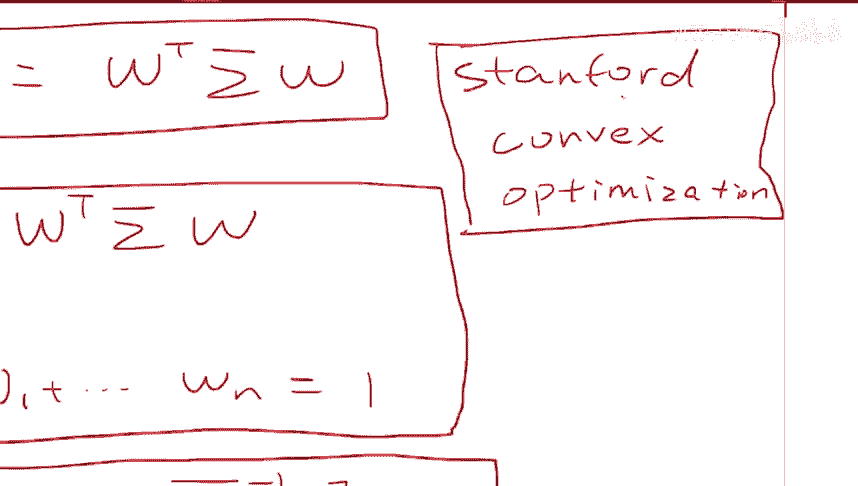 = w^T Σ w
stanford
convex
optimization
w^T Σ w
+ ... w_n = 1